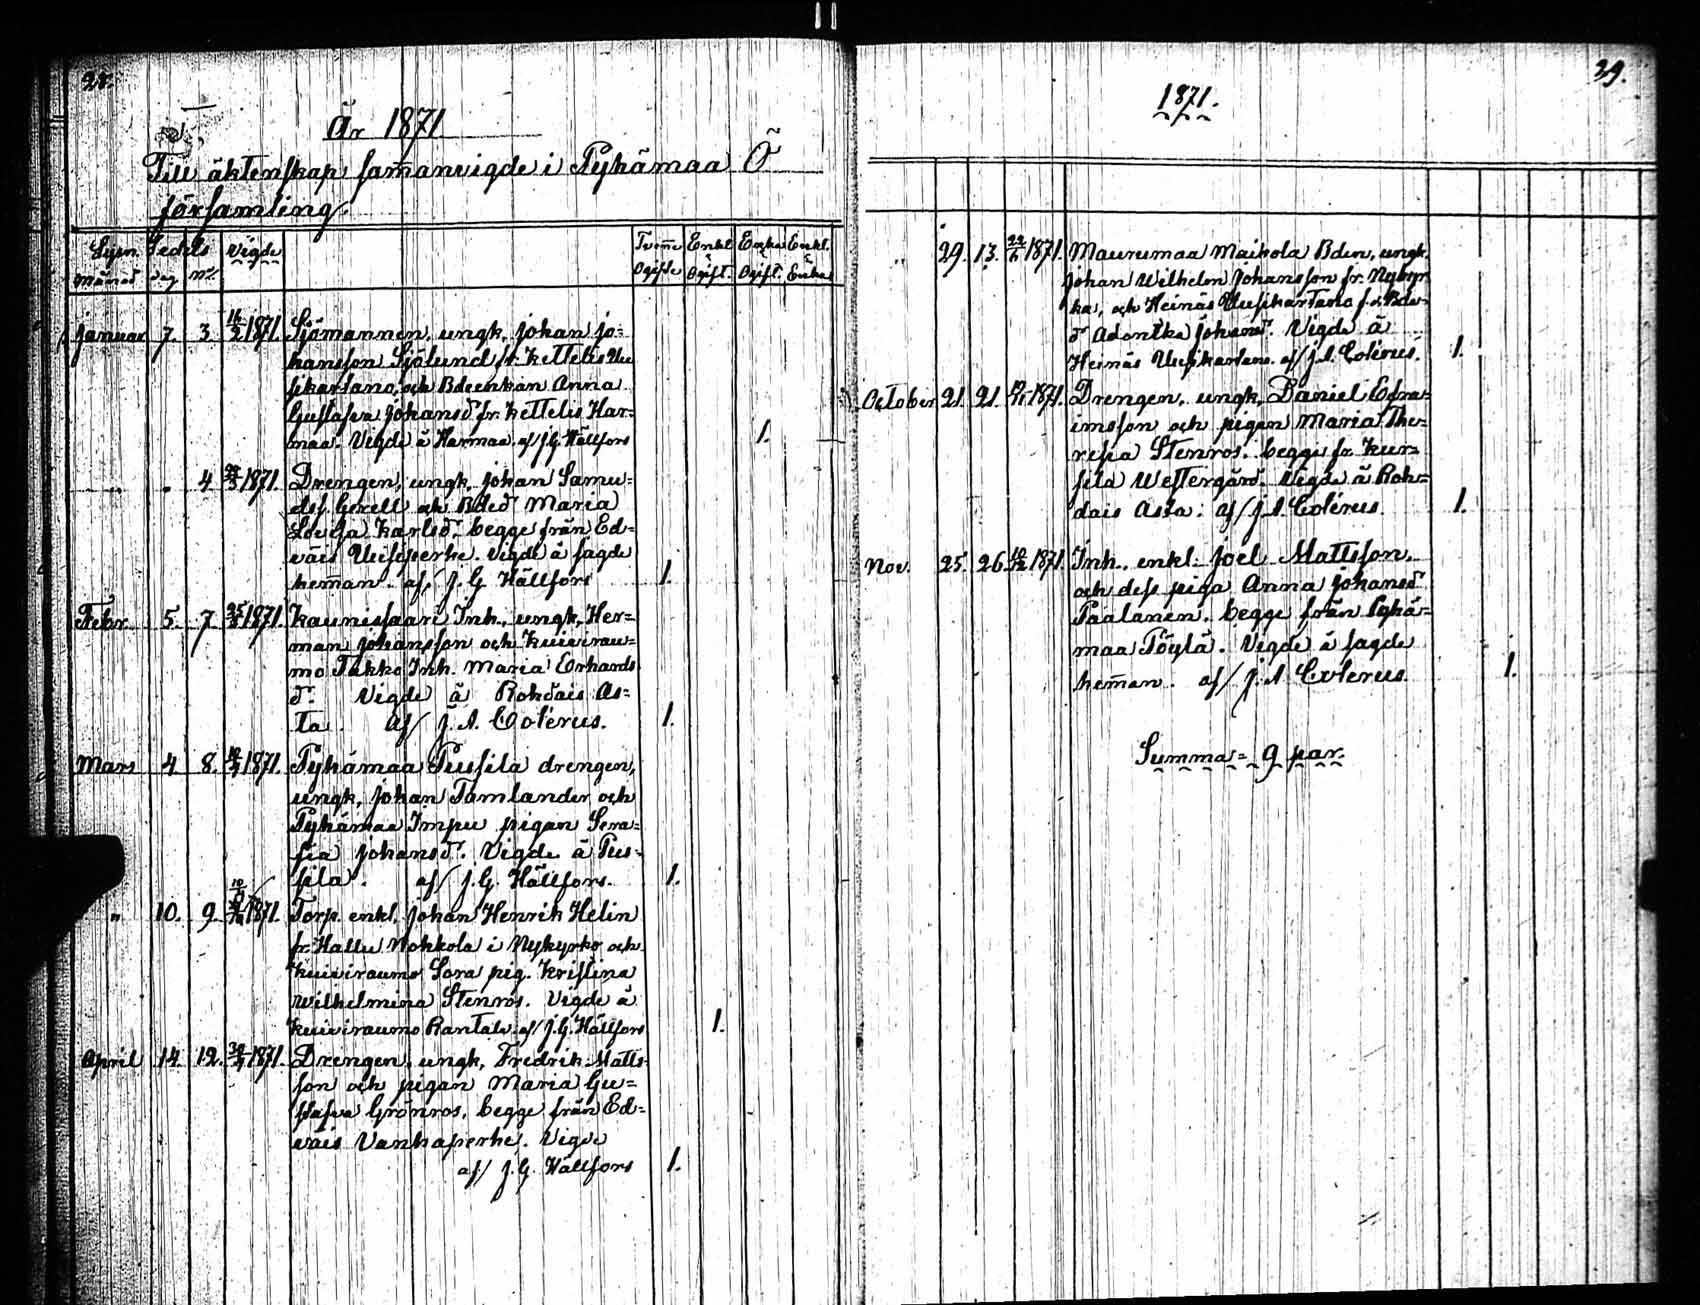 År 1871
Till äktenskap samanvigde i Pyhämaa Ö
församling.
Lysn. Sedels Vigde Tvenne Enkl. Enka Enkl.
Månad dag No. Ogifte o ogift. o Ogift. o Enka
Januar 7. 3. 16/2 1871. Sjömannen, ungk, Johan Jo=
hansson Sjölund fr. Kettelis Uu
sikartano, och Bdeenkan Anna
Gustafva Johansd. fr. Kettelis Har=
maa. Vigde å Harmaa af/ J. G. Hällfors 1.
" " 4 1871. Drengen, ungk, Johan Samu=
elsf. Gerell och Bded Maria
Lovisa Karlsd. begge från Ed=
väis Uusiperhe. Vigde å sagde
heman. af/ J. G. Hällfors 1.
Febr. 5. 7. 1871. Kaunissaari Inh., ungk, Her=
man Johansson och Kuivirau=
mo Takko Inh. Maria Erhards
d. Vigde å Rohdais As=
ta. af/ J. A. Colérus. 1.
Mars 4. 8. 1871. Pyhämaa Pussila drengen,
ungk, Johan Tamlander och
Pyhämaa Impu pigan Sera=
fia Johansd. Vigde å Pus=
sila. af/ J. G. Hällfors. 1.
" 10. 9. 1871. Torp. enkl. Johan Henrik Helin
fr. Hallu Nokkola i Nykyrko och
Kuiviraumo Sora pig. Kristina
Wilhelmina Stenros. Vigde å
Kuiviraumo Rantala. af/ J. G. Hällfors 1.
April 14. 12. 1871. Drengen, ungk, Fredrik Matts=
son och pigan Maria Gu=
stafva Grönros, begge från Ed=
väis Vanhaperhe. Vigde
af/ J. G. Hällfors 1.
39.
1871.
" 29. 13. 1871. Maurumaa Maikola Bden, ungk,
Johan Wilhelm Johansson fr. Nykyr
ka, och Heinäs Uusikartano
d. Johansd. Vigde å
Heinäs Uusikartano. af/ J. A. Colérus. 1.
October 21. 21. 1871. Drengen, ungk, Daniel Efra=
imsson och pigan Maria The=
resia Stenros. begge fr. Kur=
sila Westergård. Vigde å Roh=
dais Asta. af/ J. A. Colérus. 1.
Nov. 25. 26. 1871. Inh., enkl. Joel Mattsson,
och dess piga Anna Johansd
Paalanen. begge från Pyhä=
maa Töylä. Vigde å sagde
heman. af/ J. A. Colérus. 1.
Summa = 9 par.